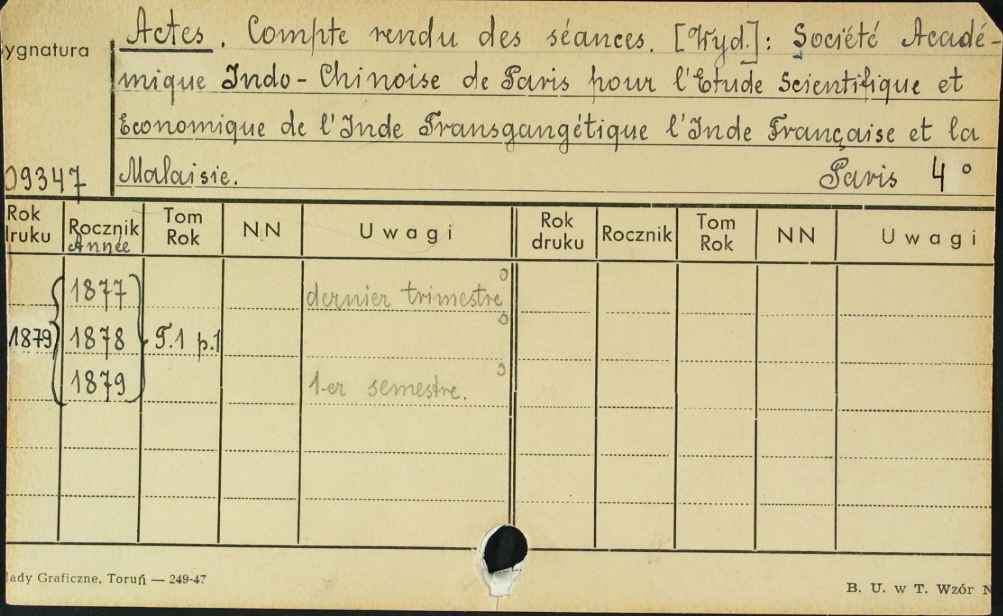 Actes. Compte rendu des séances. [Wyd.]: Société Acadé-
ygnatura
mique Indo-Chinoise de Paris pour l'Etude Scientifique et
Economique de l'Inde Transgangétique l'Inde Française et la
09347 Malaisie. Paris 4°
Rok druku Rocznik Année Tom Rok NN Uwagi Rok druku Rocznik Tom Rok NN Uwagi
1877 dernier trimestre
1879 1878 T.1 p.1
1879 1-er semestre.
ady Graficzne, Toruń — 249-47
B. U. w T. Wzór N